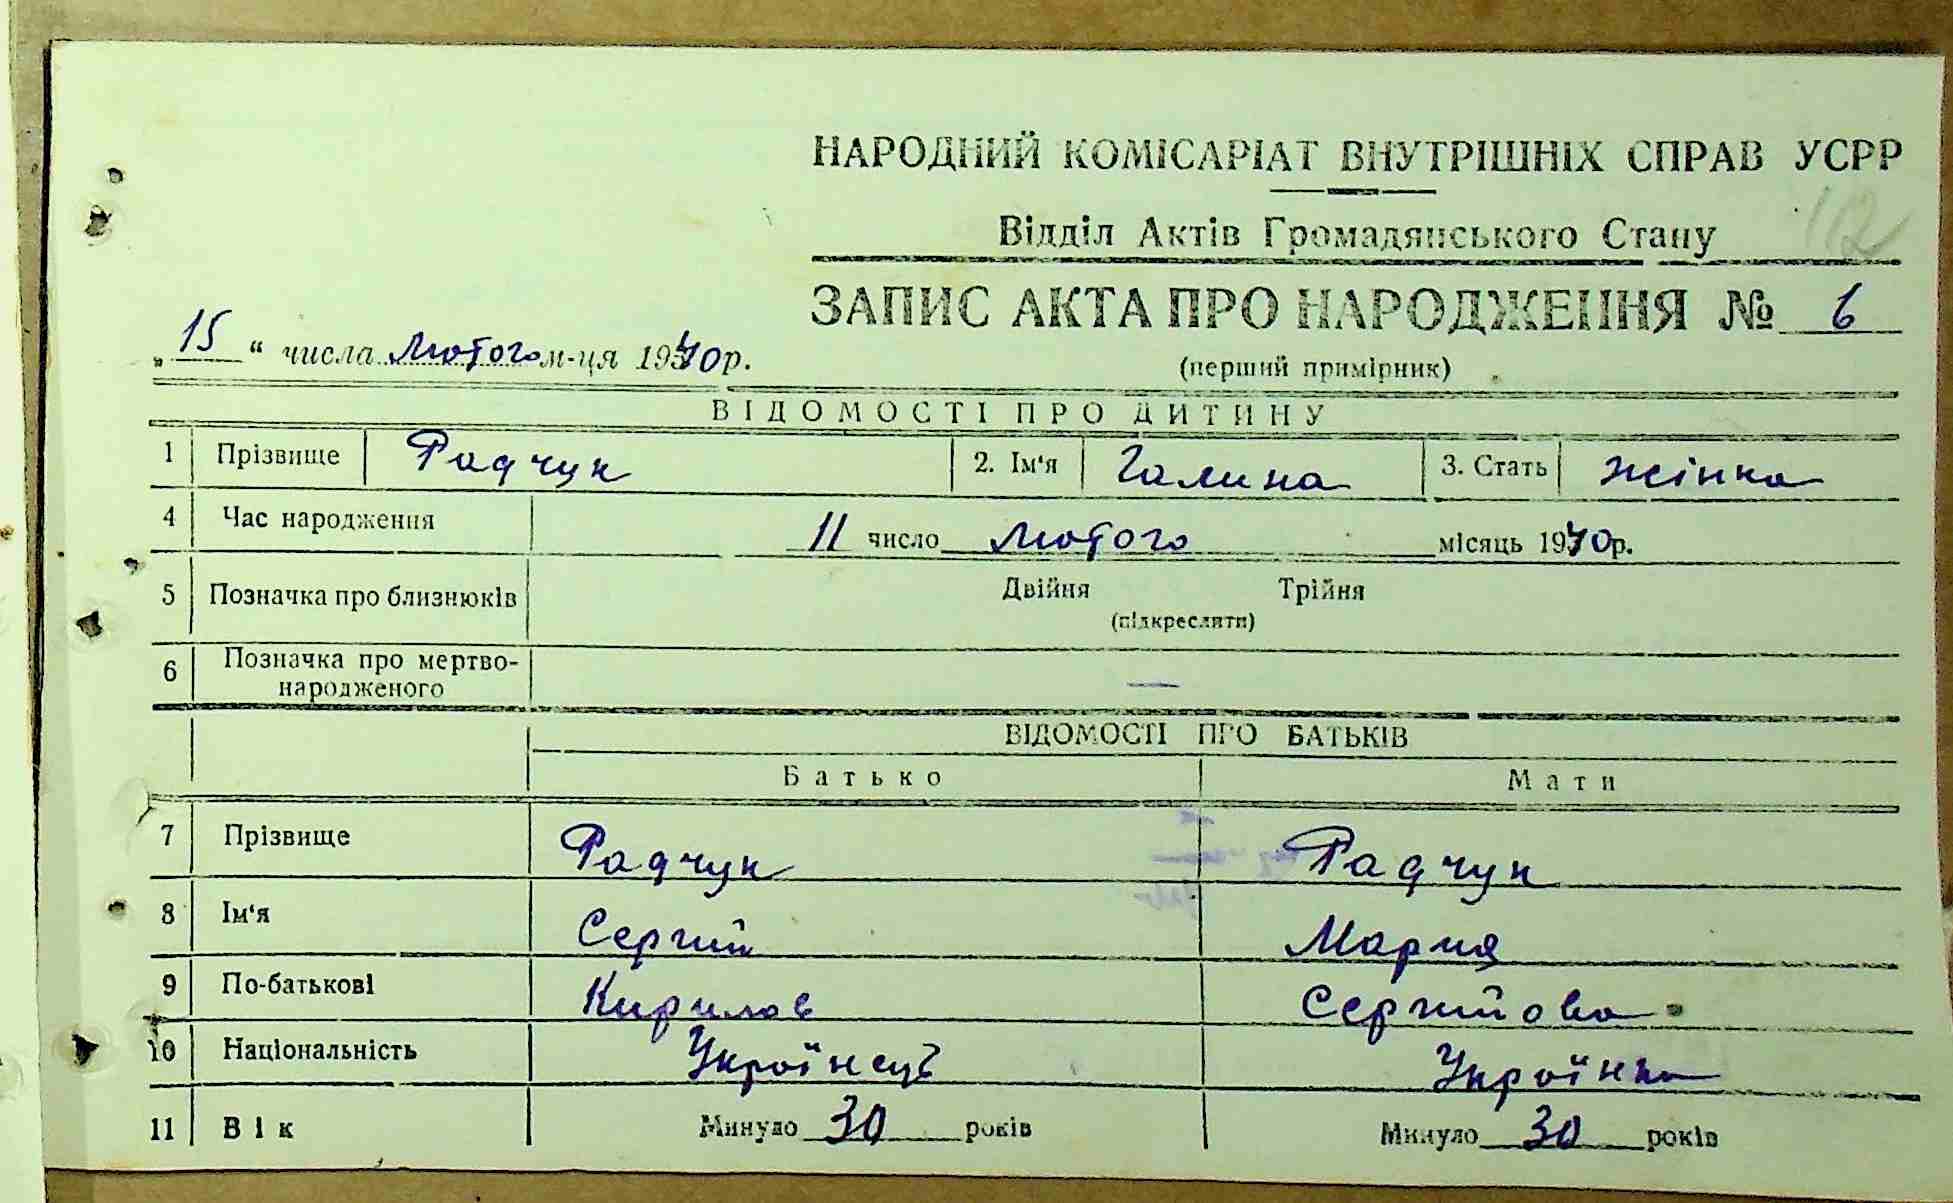 НАРОДНИЙ КОМІСАРІАТ ВНУТРІШНІХ СПРАВ УСРР
112
Відділ Актів Громадянського Стану
ЗАПИС АКТА ПРО НАРОДЖЕННЯ № 6
„15“ числа Лютого м-ця 1940р.
(перший примірник)
ВІДОМОСТІ ПРО ДИТИНУ
1 Прізвище Радчук 2. Ім‘я Галина 3. Стать жінка
4 Час народження 11 число Лютого місяць 1940р.
5 Позначка про близнюків Двійня Трійня
(підкреслити)
6 Позначка про мертво-
народженого —
ВІДОМОСТІ ПРО БАТЬКІВ
Батько Мати
7 Прізвище Радчук Радчук
8 Ім‘я Сергий Мария
9 По-батькові Кирилов Сергийова
10 Національність Українець Українка
11 Вік Минуло 30 років Минуло 30 років